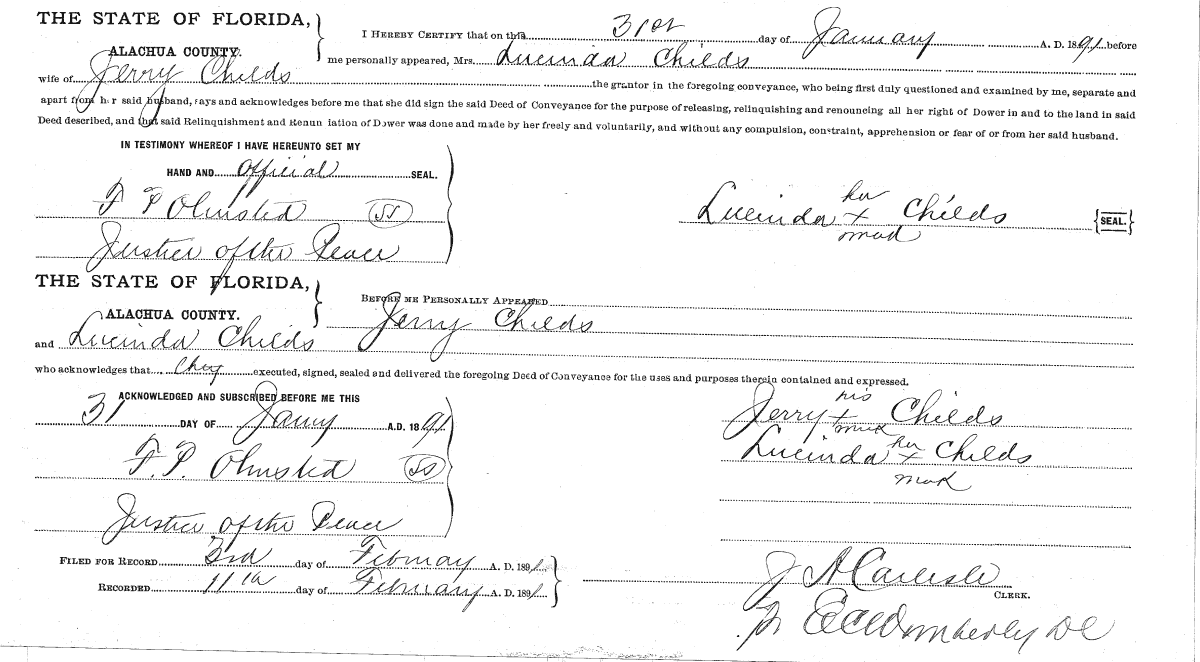 THE STATE OF FLORIDA,
ALACHUA COUNTY.
I HEREBY CERTIFY that on this 31st day of January A. D. 1891 before
me personally appeared, Mrs. Lucinda Childs
wife of Jerry Childs the grantor in the foregoing conveyance, who being first duly questioned and examined by me, separate and
apart from her said husband, says and acknowledges before me that she did sign the said Deed of Conveyance for the purpose of releasing, relinquishing and renouncing all her right of Dower in and to the land in said
Deed described, and that said Relinquishment and Renunciation of Dower was done and made by her freely and voluntarily, and without any compulsion, constraint, apprehension or fear of or from her said husband.
IN TESTIMONY WHEREOF I HAVE HEREUNTO SET MY
HAND AND official SEAL.
F P Olmsted SS
Justice of the Peace
her
Lucinda x Childs {SEAL.}
mark
THE STATE OF FLORIDA,
ALACHUA COUNTY.
BEFORE ME PERSONALLY APPEARED
Jerry Childs
and Lucinda Childs
who acknowledges that they executed, signed, sealed and delivered the foregoing Deed of Conveyance for the uses and purposes therein contained and expressed.
ACKNOWLEDGED AND SUBSCRIBED BEFORE ME THIS
31 DAY OF Jany A.D. 1891
F. P. Olmsted SS
Justice of the Peace
his
Jerry + Childs
mark
her
Lucinda + Childs
mark
FILED FOR RECORD 3rd day of February A. D. 1891
RECORDED 11th day of February A. D. 1891
J A Carlisle
CLERK.
pr E C Womberly DC